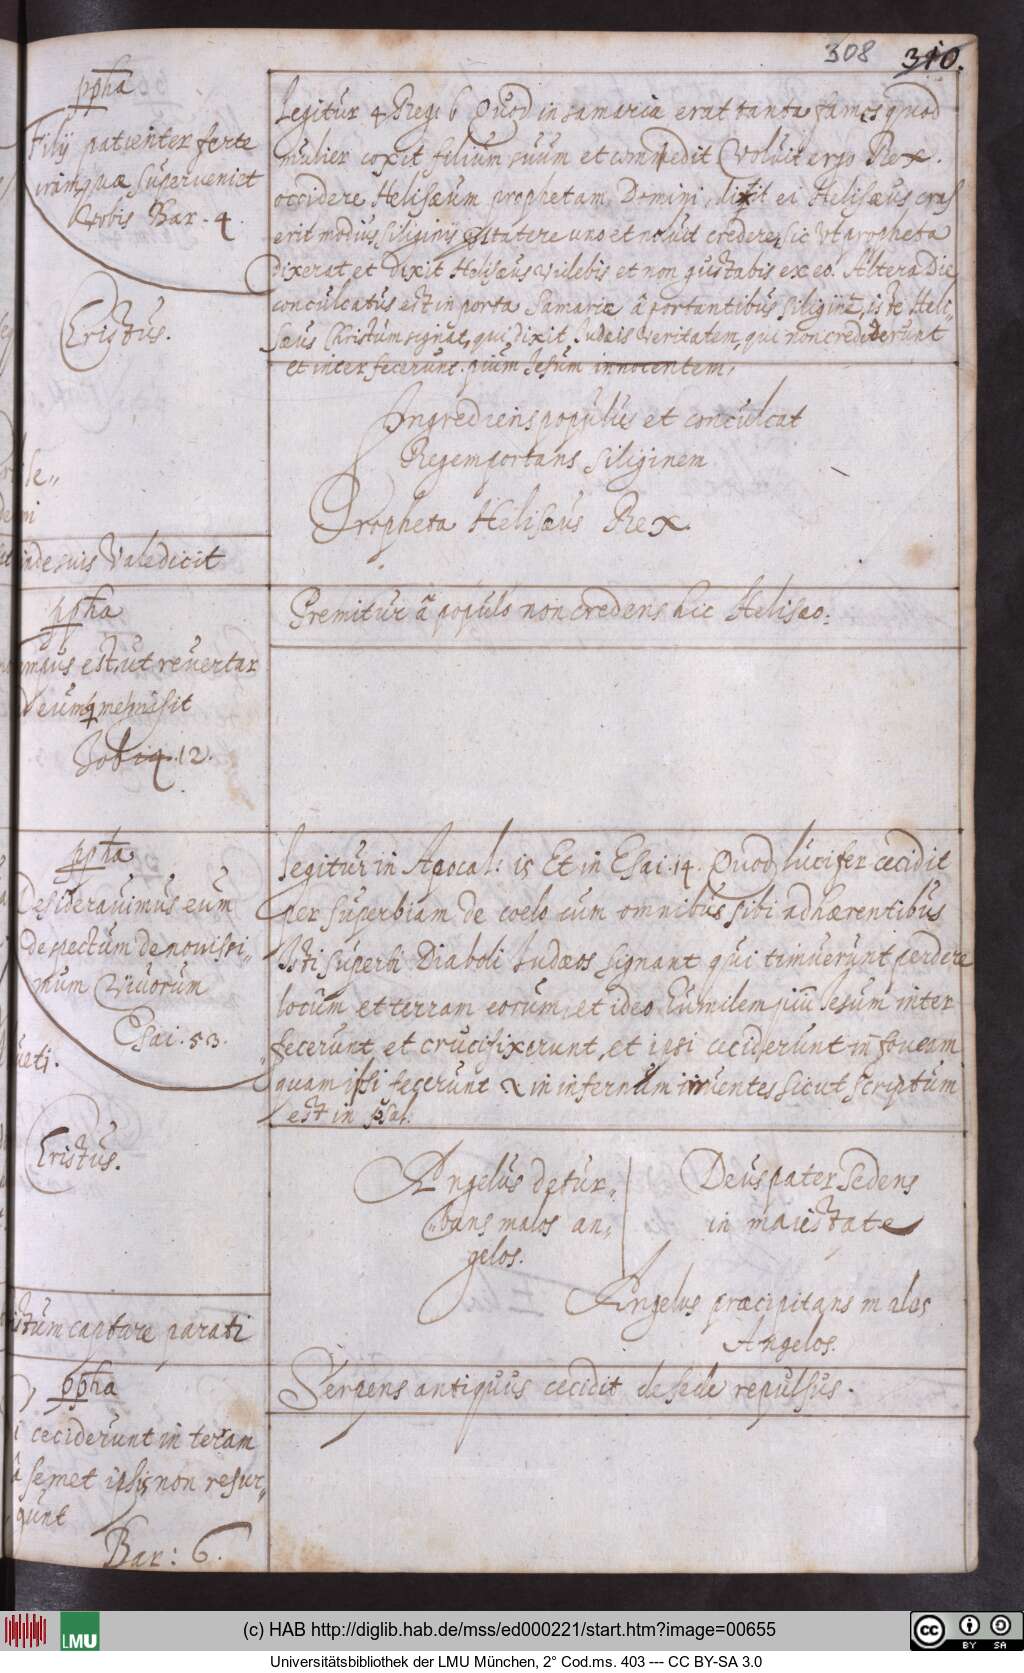 308 310.
ppha
Filÿ patienter ferte
iram quæ superveniet
Vobis Bar. 4.
Cristus.
Legitur 4 Reg: 6 Quod in samaria erat tanta fames quod
mulier coxit filium suum et commedit Voluit ergo Rex.
occidere Helisæum prophetam Domini, dixit ei Helisæus cras
erit modius siliginis statere uno et noluit credere, sic Vt propheta
dixerat et Dixit Helisæus videbis et non gustabis ex eo. Altera Die
conculcatus est in porta Samariæ â portantibus siliginē, iste Heli„
sæus Christum signat, qui dixit Judæis veritatem, qui non crediderunt
et interfecerunt pium Jesum innocentem,
Ingrediens populus et conculcat
Regem portans siliginem
Propheta Helisæus Rex.
inde suis Valedicit
Premitur â populo non credens hic Heliseo:
ppha
est, ut revertar
Deum
Job 14. 12.
ppha
Desideravimus eum
despectum de novissi„
mum Virorum
Esai. 53.
Cristus.
Legitur in Apocal: 15 Et in Esai. 14. Quod lucifer cecidit
per superbiam de coelo cum omnibus sibi adhærentibus
Isti superbi Diaboli Judæos signant qui timuerunt perdere
locum et terram eorum, et ideo humilem piū Jesum inter
fecerunt, et crucifixerunt, et ipsi ceciderunt in foveam
quam ipsi fecerunt & in infernum inruentes sicut scriptum
est in psal.
Angelus detur„
bans malos an„
gelos.
Deus pater sedens
in maiestate
Angelus præcipitans malos
Angelos.
captare parati
Serpens antiquus cecidit de sede repulsus.
ppha
ceciderunt in teram
â semet ipsis non resur„
gunt
Bar: 6.
LMU
(c) HAB http://diglib.hab.de/mss/ed000221/start.htm?image=00655
Universitätsbibliothek der LMU München, 2° Cod.ms. 403 --- CC BY-SA 3.0
cc BY SA